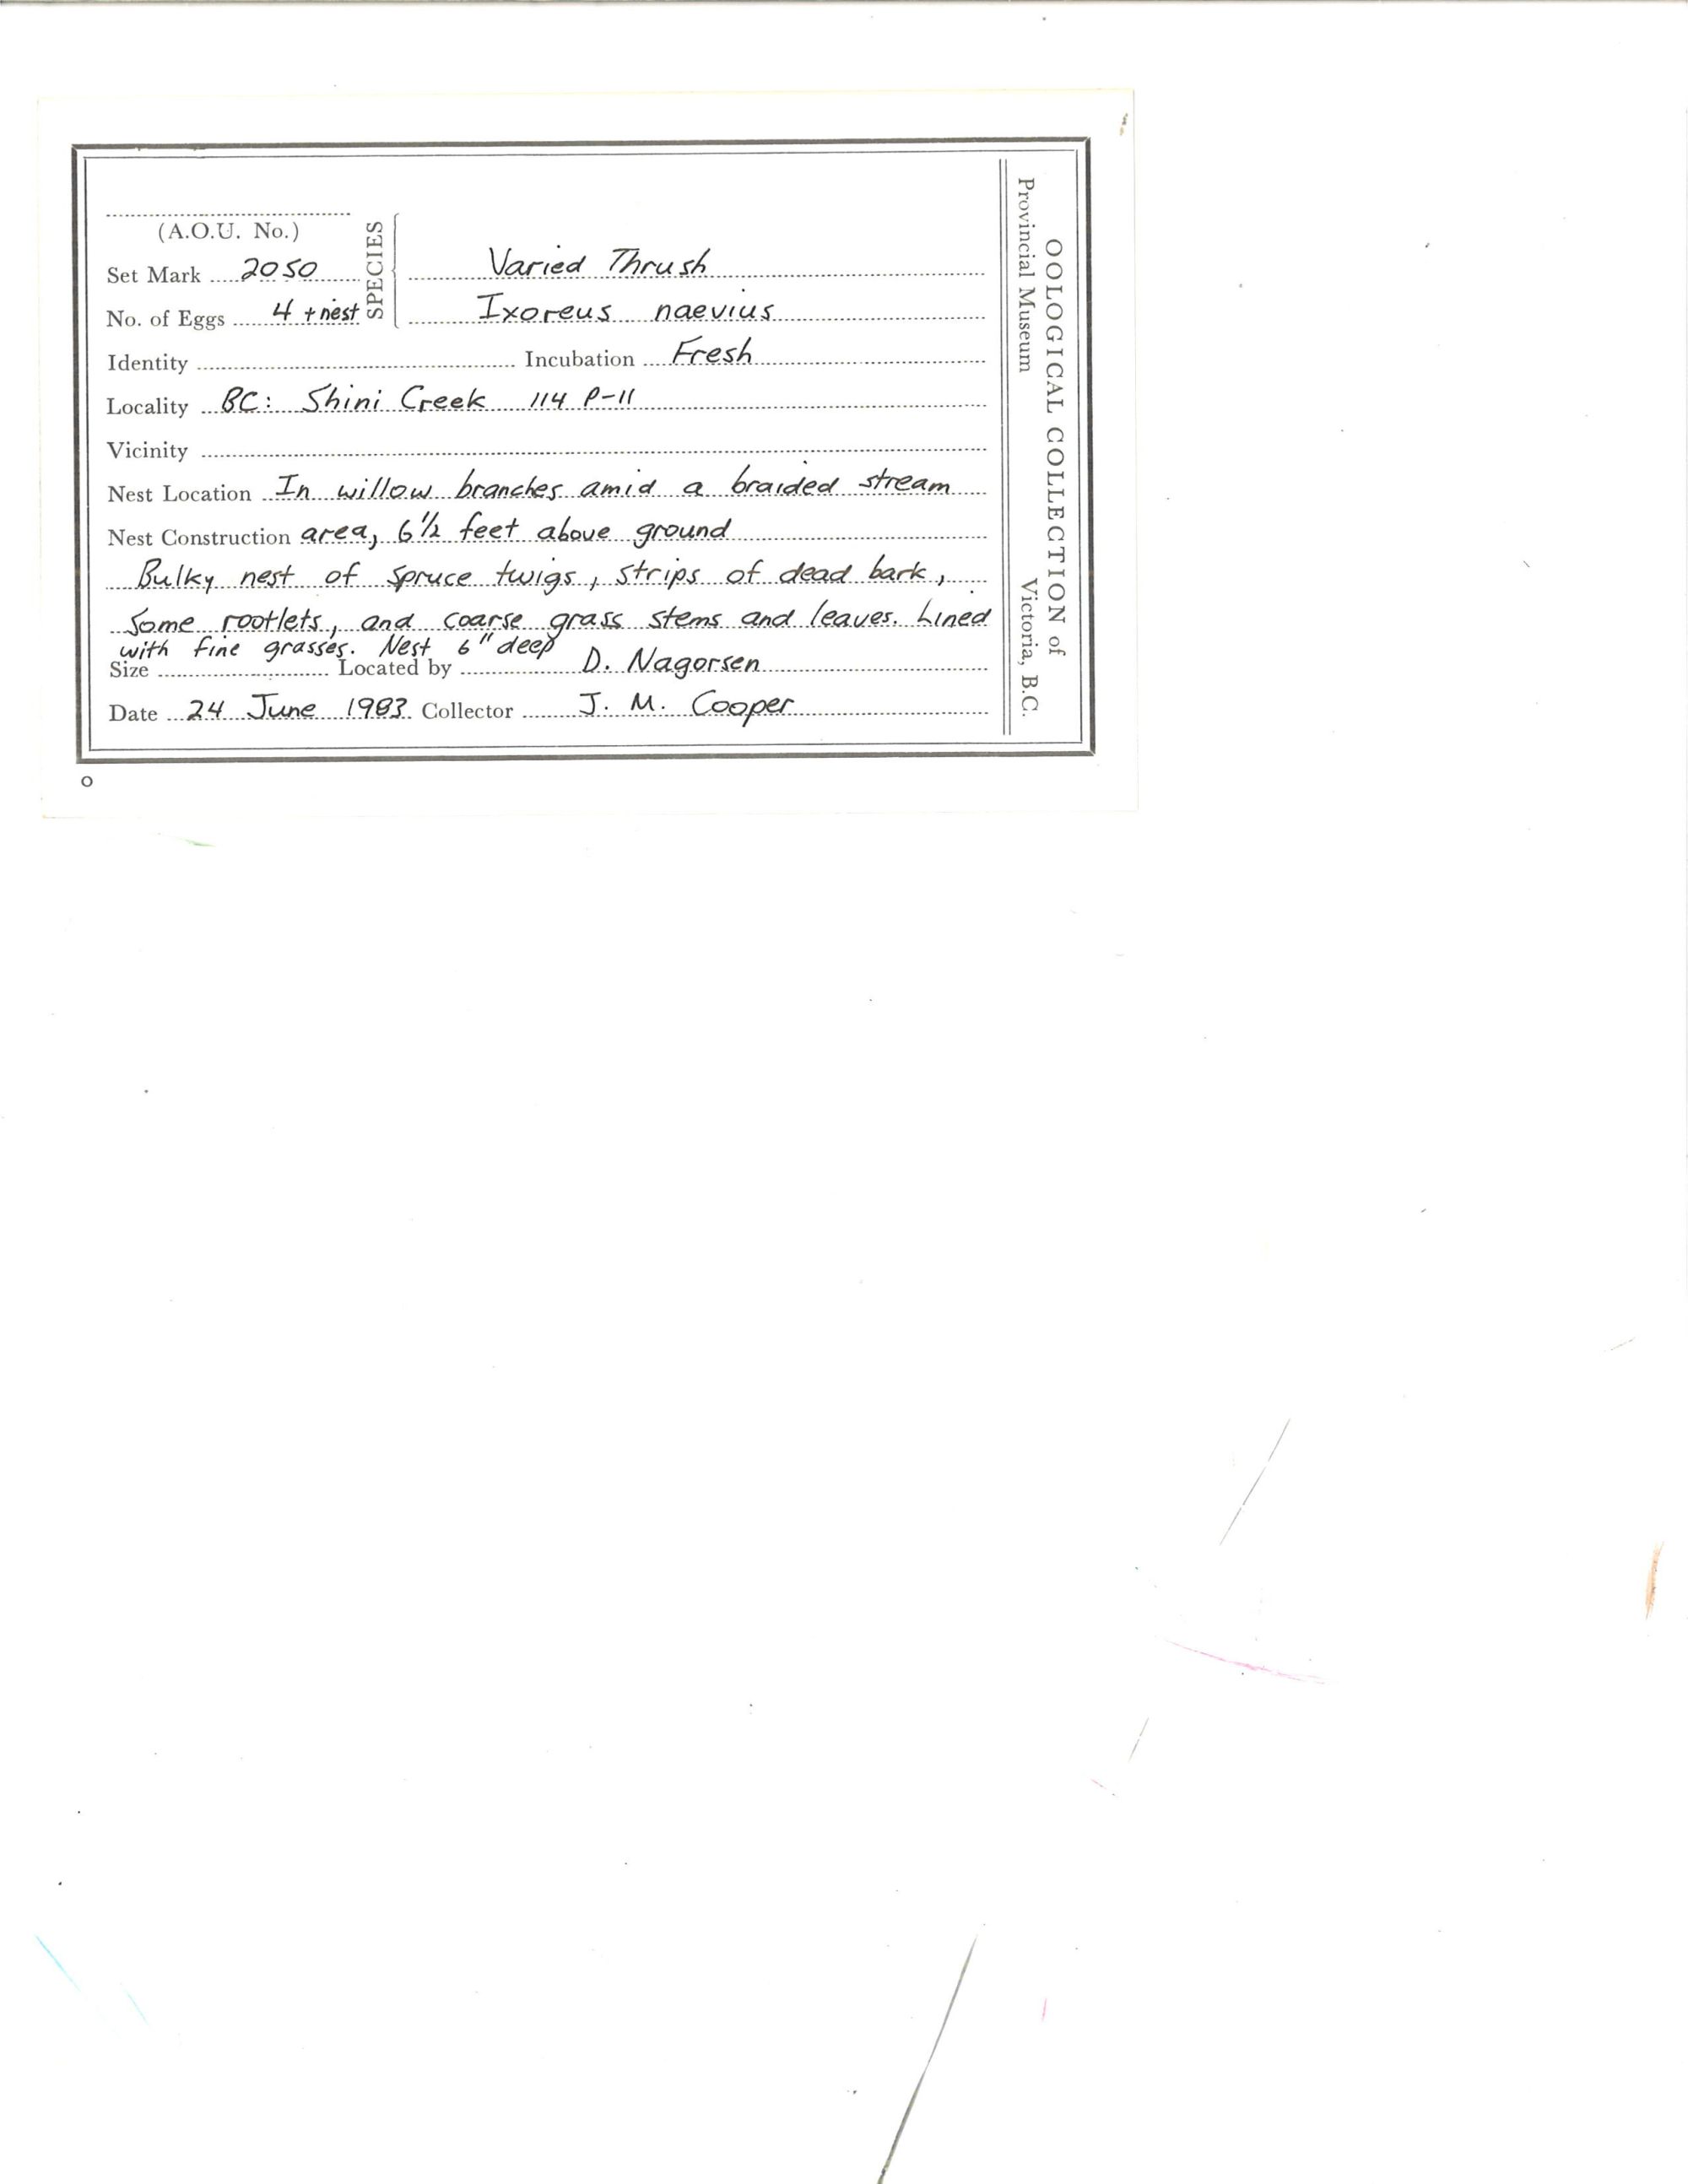 (A.O.U. No.)
Set Mark 2050
No. of Eggs 4 + nest
SPECIES
Varied Thrush
Ixoreus naevius
Identity Incubation Fresh
Locality BC: Shini Creek 114 P-11
Vicinity
Nest Location In willow branches amid a braided stream
Nest Construction area, 6 1/2 feet above ground
Bulky nest of spruce twigs, strips of dead bark,
some rootlets, and coarse grass stems and leaves. Lined
with fine grasses. Nest 6" deep
Size Located by D. Nagorsen
Date 24 June 1983 Collector J. M. Cooper
OOLOGICAL COLLECTION of
Provincial Museum Victoria, B.C.
O